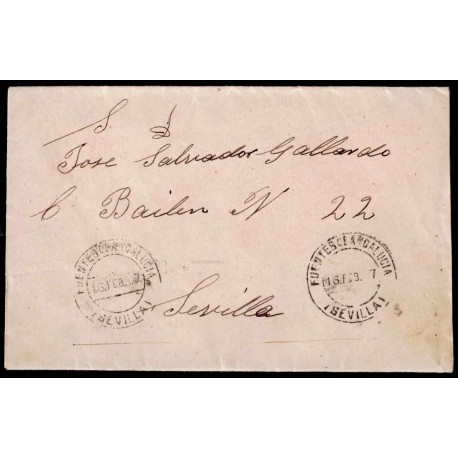 S. D.
Jose Salvador Gallardo
C Bailen N 22
Sevilla
FUENTES DE ANDALUCIA
16.FEB. 7
(SEVILLA)
FUENTES DE ANDALUCIA
16.FEB. 7
(SEVILLA)